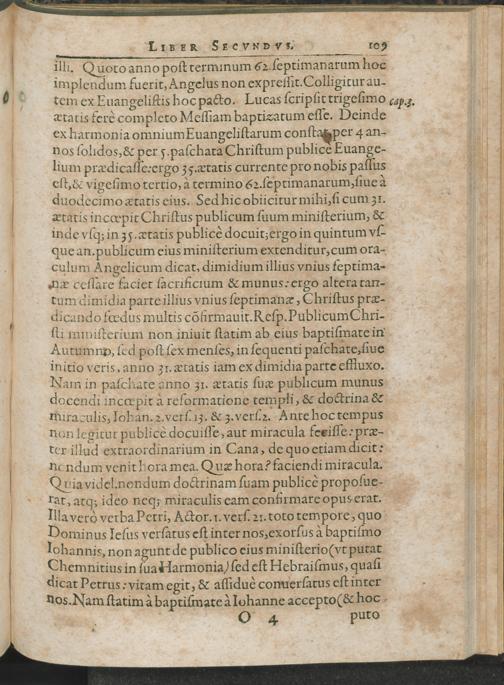 LIBER SECVNDVS. 109
illi. Quoto anno post terminum 62. septimanarum hoc
implendum fuerit, Angelus non expressit. Colligitur au-
tem ex Euangelistis hoc pacto. Lucas scripsit trigesimo cap.3.
ætatis ferè completo Messiam baptizatum esse. Deinde
ex harmonia omnium Euangelistarum constat, per 4 an-
nos solidos, & per 5. paschata Christum publicè Euange-
lium prædicasse: ergo 35. ætatis currente pro nobis passus
est, & vigesimo tertio, à termino 62. septimanarum, siue à
duodecimo ætatis eius. Sed hic obiicitur mihi, si cum 31.
ætatis incœpit Christus publicum suum ministerium, &
inde vsq; in 35. ætatis publicè docuit; ergo in quintum vs-
que an. publicum eius ministerium extenditur, cum ora-
culum Angelicum dicat, dimidium illius vnius septima-
næ cessare faciet sacrificium & munus: ergo altera tan-
tum dimidia parte illius vnius septimanæ, Christus præ-
dicando fœdus multis cõfirmauit. Resp. Publicum Chri-
sti ministerium non iniuit statim ab eius baptismate in
Autumno, sed post sex menses, in sequenti paschate, siue
initio veris, anno 31. ætatis iam ex dimidia parte effluxo.
Nam in paschate anno 31. ætatis suæ publicum munus
docendi incœpit à reformatione templi, & doctrina &
miraculis, Iohan. 2. vers. 13. & 3. vers. 2. Ante hoc tempus
non legitur publicè docuisse, aut miracula fecisse: præ-
ter illud extraordinarium in Cana, de quo etiam dicit:
nondum venit hora mea. Quæ hora? faciendi miracula.
Quia videl. nondum doctrinam suam publicè proposue-
rat, atq; ideo neq; miraculis eam confirmare opus erat.
Illa verò verba Petri, Actor. 1. vers. 21. toto tempore, quo
Dominus Iesus versatus est inter nos, exorsus à baptismo
Iohannis, non agunt de publico eius ministerio (vt putat
Chemnitius in sua Harmonia) sed est Hebraismus, quasi
dicat Petrus: vitam egit, & assiduè conuersatus est inter
nos. Nam statim à baptismate à Iohanne accepto (& hoc
O 4 puto